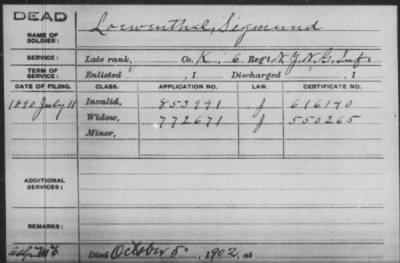 DEAD
NAME OF SOLDIER: Loewenthal, Sigmund
SERVICE: Late rank, Co. K. 6 Reg't N.Y.N.G. Inf.
TERM OF SERVICE: Enlisted , 1 Discharged , 1
DATE OF FILING. CLASS. APPLICATION NO. LAW. CERTIFICATE NO.
1890 July 18 Invalid, 853991 J 616140
Widow, 772671 J 550265
Minor,
ADDITIONAL SERVICES:
REMARKS:
Died October 5, 1902, at